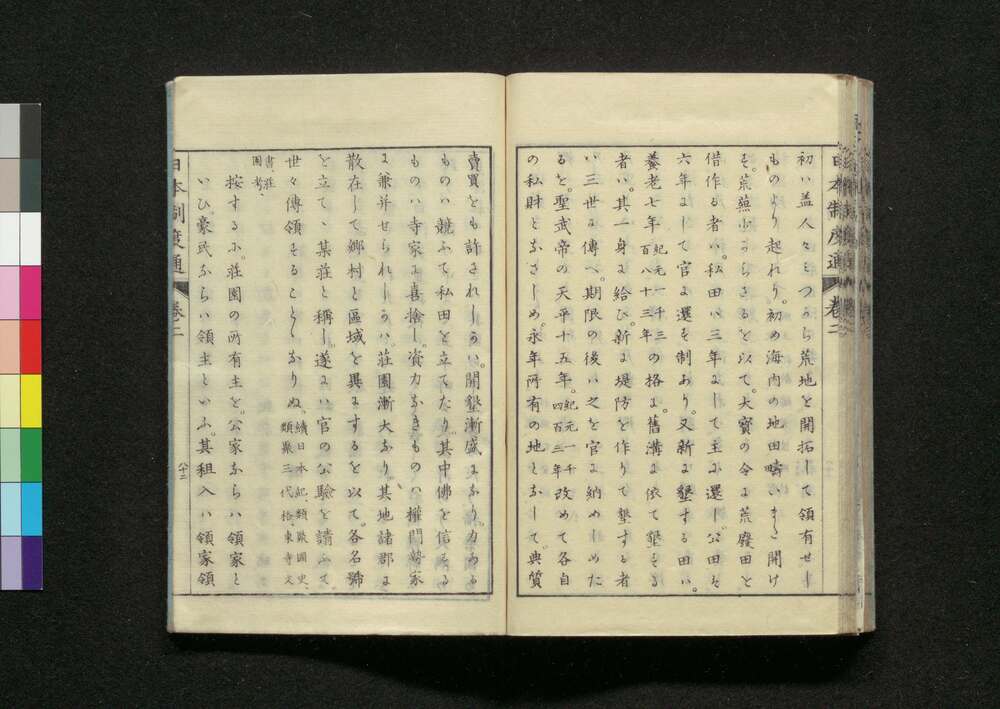 初ハ蓋人々ミつから荒地を開拓して領有せし
ものより起れり。初め海内の地田疇いまた開け
す。荒蕪少からさるを以て。大寶の令に荒廢田を
借作る者ハ。私田ハ三年にして主に還し。公田ハ
六年にして官に還す制あり。又新に墾する田ハ。
養老七年紀元一千三百八十三年の格に。舊溝に依て墾する
者ハ。其一身に給ひ。新に堤防を作りて墾する者
ハ三世に傳へ。期限の後ハ之を官に納めしめた
るを。聖武帝の天平十五年。紀元一千四百三年改めて各自
の私財となさしめ。永年所有の地となして。典質
賣買をも許されしかハ。開墾漸盛になり。力ある
ものハ競ふて私田を立てたり。其中佛を信する
ものハ寺家に喜捨し。資力なきものハ權門勢家
に兼并せられしかハ。莊園漸大なり。其地諸郡に
散在して鄉村と區域を異にするを以て。各名號
を立て、某莊と稱し。遂にハ官の公驗を請ふて。
世々傳領することゝなりぬ。續日本紀、類聚國史、類聚三代格、東寺文
書、莊園考、
按するに。莊園の所有主を。公家ならハ領家と
いひ。豪民ならハ領主といふ。其租入ハ領家領
日本制度通
卷二
八十二
日本制度通
卷二